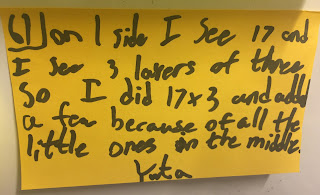 61) on 1 side I see 17 and
I see 3 layers of three
So I did 17x3 and added
a few because of all the
little ones in the middle.
Yuta